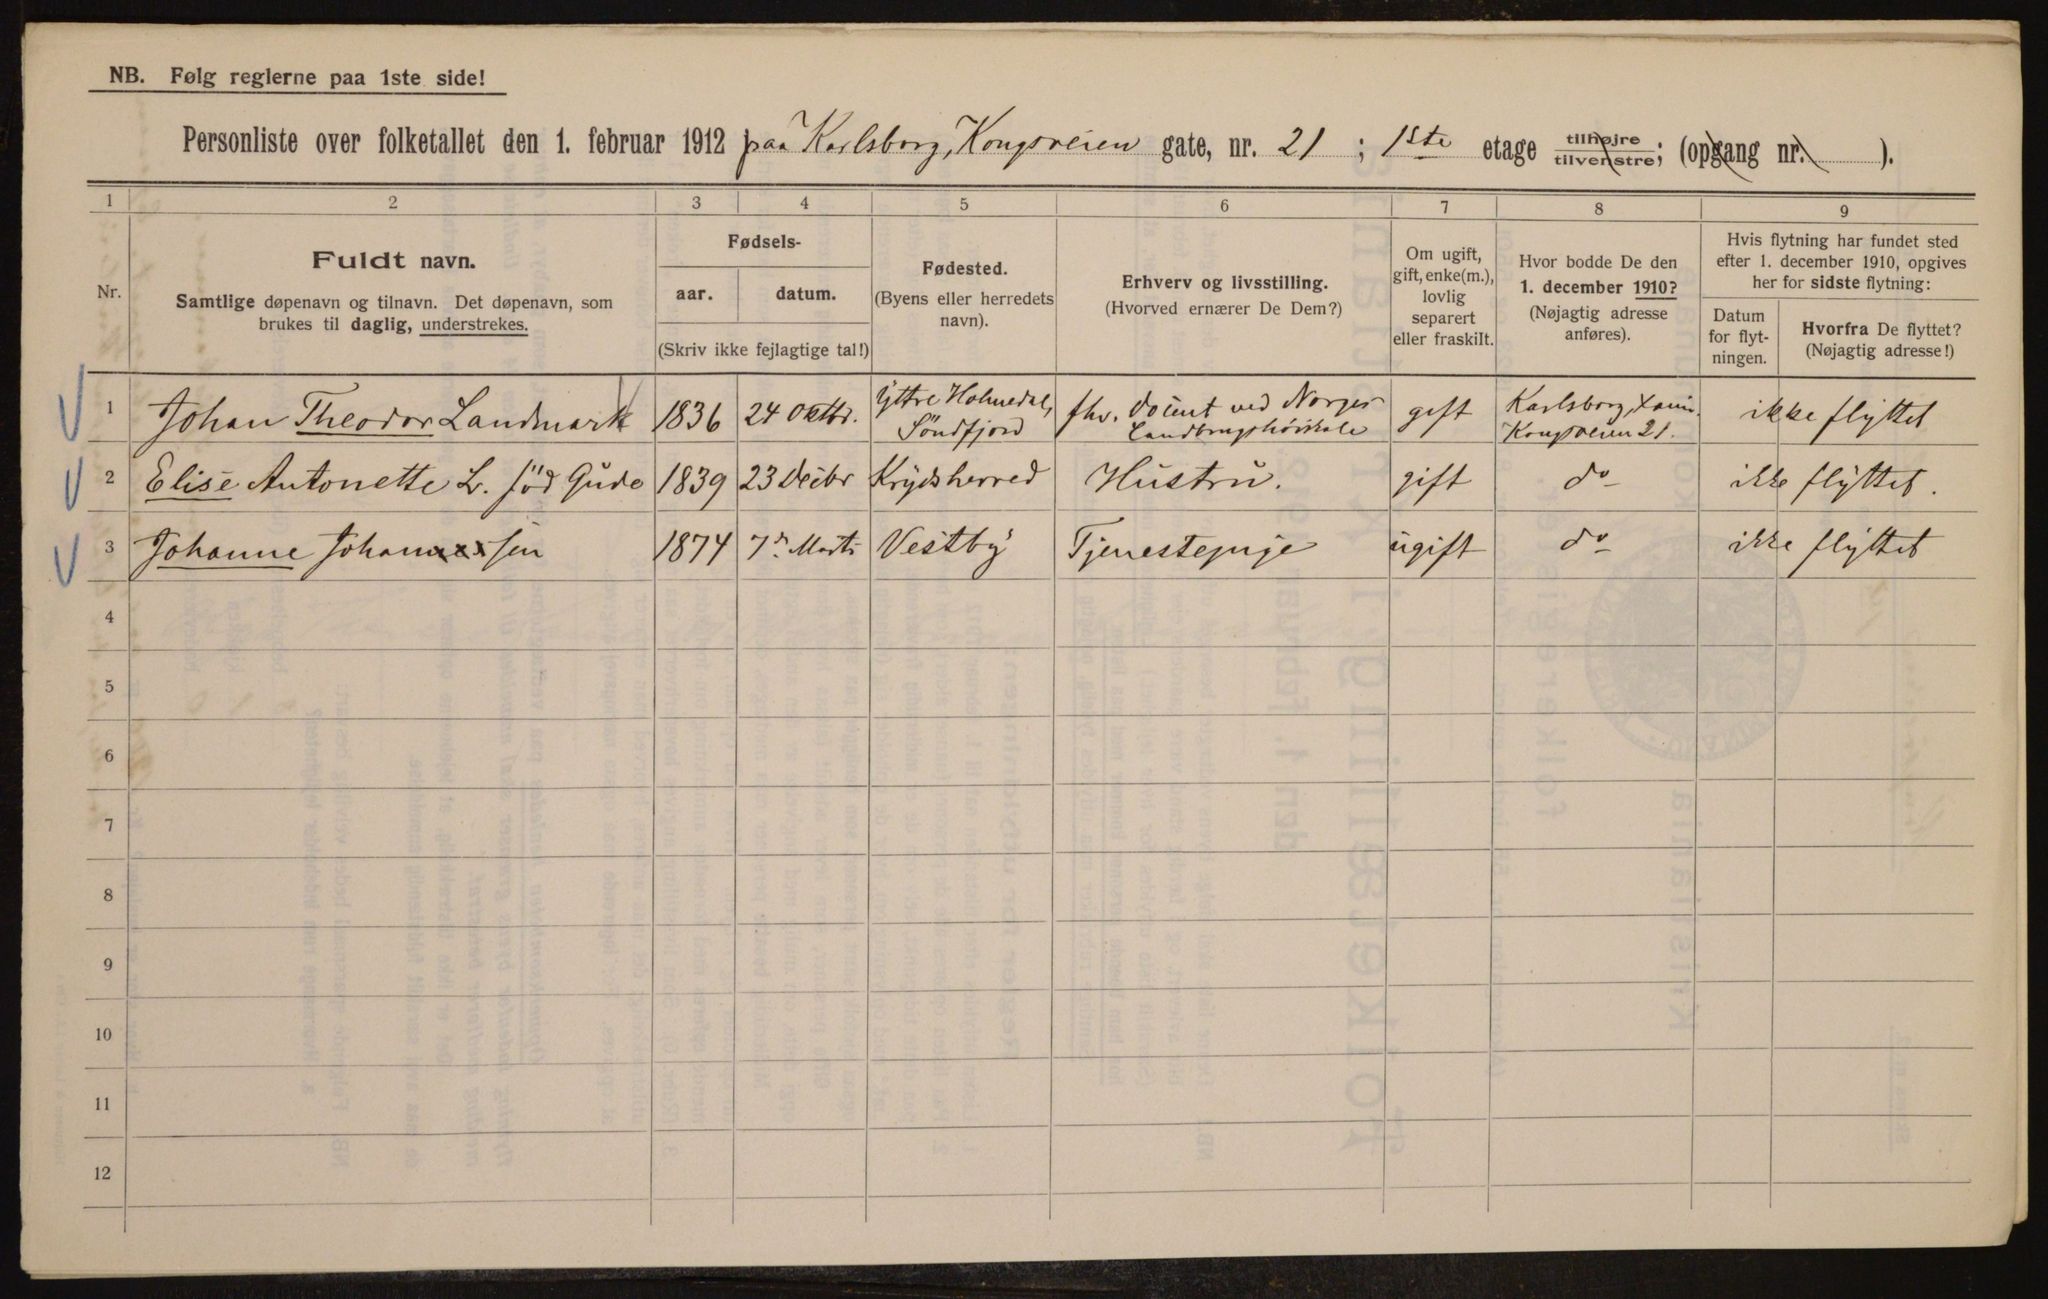 NB. Følg reglerne paa 1ste side!
Personliste over folketallet den 1. februar 1912 paa Karlsborg, Kongsveien gate, nr. 21 ; 1ste etage tilhøjre tilvenstre; (opgang nr. ).
1 2 3 4 5 6 7 8 9
Nr.
Fuldt navn.
Samtlige døpenavn og tilnavn. Det døpenavn, som
brukes til daglig, understrekes.
Fødsels-
aar. datum.
(Skriv ikke fejlagtige tal!)
Fødested.
(Byens eller herredets
navn).
Erhverv og livsstilling.
(Hvorved ernærer De Dem?)
Om ugift,
gift, enke(m.),
lovlig
separert
eller fraskilt.
Hvor bodde De den
1. december 1910?
(Nøjagtig adresse
anføres).
Hvis flytning har fundet sted
efter 1. december 1910, opgives
her for sidste flytning:
Datum
for flyt-
ningen.
Hvorfra De flyttet?
(Nøjagtig adresse!)
1 Johan Theodor Landmark 1836 24 Oktbr. Ÿttre Holmedal, Söndfjord fhv. Docent ved Norges Landbrugshöiskole gift Karlsborg, Kongsveien 21. ikke flÿttet
2 Elise Antonette L. född Gude 1839 23 Decbr Krÿdsherred Hustru. gift do ikke flÿttet.
3 Johanne Johansen 1874 7de Marts Vestbÿ Tjenestepige ugift do ikke flÿttet
4
5
6
7
8
9
10
11
12